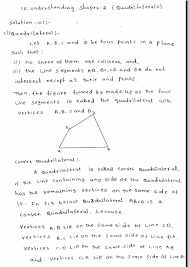 16. Understanding Shapes-2 (Quadrilaterals).
Solution -01:-
(i) Quadrilateral:-
Let A, B, C and D be four points in a plane
such that:
(i) no three of them are collinear and,
(ii) the Line segments AB, BC, CD and DA do not
intersect except at their end points.
Then, the figure formed by made up of the four
line segments is called the quadrilateral with
vertices A, B, C and D.
Convex Quadrilateral:-
A Quadrilateral is called convex Quadrilateral,
if the Line containing any side of the Quadrilateral
has the remaining vertices on the same side of
it. In fig below Quadrilateral ABCD is a
convex Quadrilateral, because
Vertices A, B lie on the same side of Line CD,
Vertices B, C lie on the same side of Line DA,
Vertices C, D lie on the same side of Line AB
and, Vertices D, A lie on the same side of Line BC